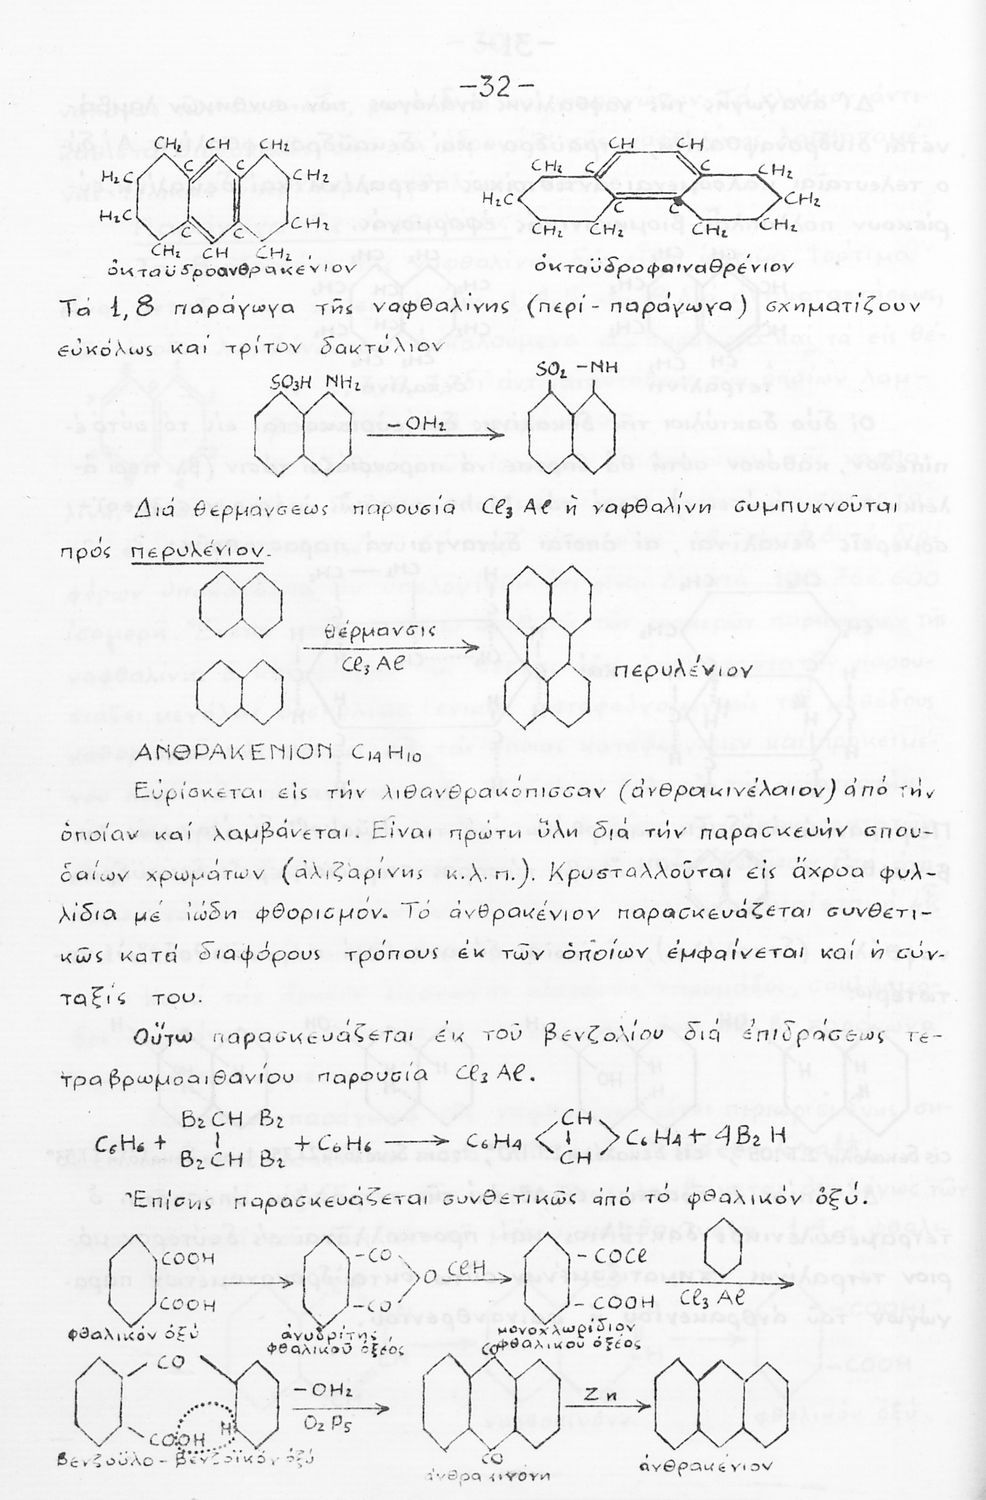 -32-
CH₂ CH CH₂
H₂C C C CH₂
H₂C C C CH₂
CH₂ CH CH₂
ὀκταϋδροανθρακένιον
CH CH
CH₂ C C CH₂
H₂C C C CH₂
CH₂ CH₂ CH₂ CH₂
ὀκταϋδροφαιναθρένιον
Τά 1,8 παράγωγα τῆς ναφθαλίνης (περί - παράγωγα) σχηματίζουν
εὐκόλως καί τρίτον δακτύλιον
SO₃H NH₂ SO₂ -NH
- OH₂
Διά θερμάνσεως παρουσίᾳ Cl₃ Al ἡ ναφθαλίνη συμπυκνοῦται
πρός περυλένιον.
θέρμανσις
Cl₃ Al
περυλένιον
ΑΝΘΡΑΚΕΝΙΟΝ C₁₄ H₁₀
Εὑρίσκεται εἰς τήν λιθανθρακόπισσαν (ἀνθρακινέλαιον) ἀπό τήν
ὁποίαν καί λαμβάνεται. Εἶναι πρώτη ὕλη διά τήν παρασκευήν σπου-
δαίων χρωμάτων (ἀλιζαρίνης κ.λ.π.). Κρυσταλλοῦται εἰς ἄχροα φυλ-
λίδια μέ ἰώδη φθορισμόν. Τό ἀνθρακένιον παρασκευάζεται συνθετι-
κῶς κατά διαφόρους τρόπους ἐκ τῶν ὁποίων ἐμφαίνεται καί ἡ σύν-
ταξίς του.
Οὕτω παρασκευάζεται ἐκ τοῦ βενζολίου διά ἐπιδράσεως τε-
τραβρωμοαιθανίου παρουσίᾳ Cl₃ Al.
B₂ CH B₂ CH
C₆H₆ + + C₆H₆ C₆H₄ C₆H₄ + 4B₂ H
B₂ CH B₂ CH
Ἐπίσης παρασκευάζεται συνθετικῶς ἀπό τό φθαλικόν ὀξύ.
COOH -CO O ClH - COCl
COOH -CO - COOH Cl₃ Al
φθαλικόν ὀξύ ἀνυδρίτης φθαλικοῦ ὀξέος μονοχλωρίδιον φθαλικοῦ ὀξέος
CO - OH₂ CO Zn
COOH H O₂ P₅ CO
βενζοϋλο - βενζοϊκόν ὀξύ ἀνθρακινόνη ἀνθρακένιον